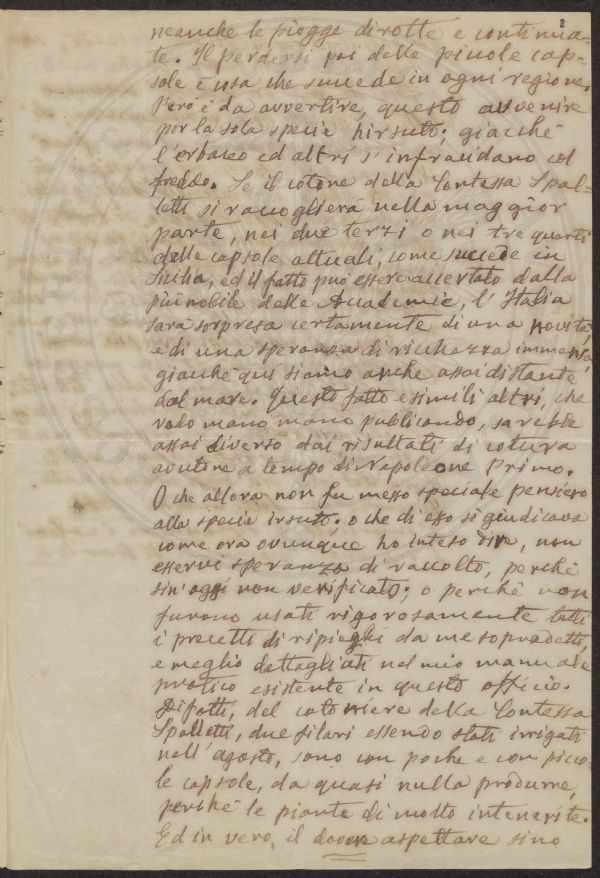 2
neanche le piogge dirotte e continua-
te. Il perdersi poi delle piccole cap-
sole è cosa che succede in ogni regione.
Però è da avvertire, questo avvenire
per la sola specie hirsuto; giacchè
l'erbaceo ed altri s'infracidano col
freddo. Se il cotone della Contessa Spal-
letti si raccoglierà nella maggior
parte, nei due terzi o nei tre quarti
delle capsole attuali, come succede in
Sicilia, ed il fatto può essere accertato dalla
più nobile delle Accademie, l'Italia
sarà sorpresa certamente di una novità,
e di una speranza di ricchezza immensa,
giacchè qui siamo anche assai distante
dal mare. Questo fatto e simili altri, che
vado mano mano publicando, sarebbe
assai diverso dai risultati di coltura
avutone a tempo di Napoleone Primo.
O che allora non fu messo speciale pensiero
alla specie irsuto; o che di esso si giudicava
come ora ovunque ho inteso dire, non
esservi speranza di raccolto, perchè
sin'oggi non verificato; o perchè non
furono usati rigorosamente tutti
i precetti di ripieghi da me sopradetti,
e meglio dettagliati nel mio manuale
pratico esistente in questo officio.
Difatti, del cotoniere della Contessa
Spalletti, due filari essendo stati irrigati
nell'agosto, sono con poche e con picco-
le capsole, da quasi nulla produrre,
perchè le piante di molto intenerite.
Ed in vero, il dover aspettare sino